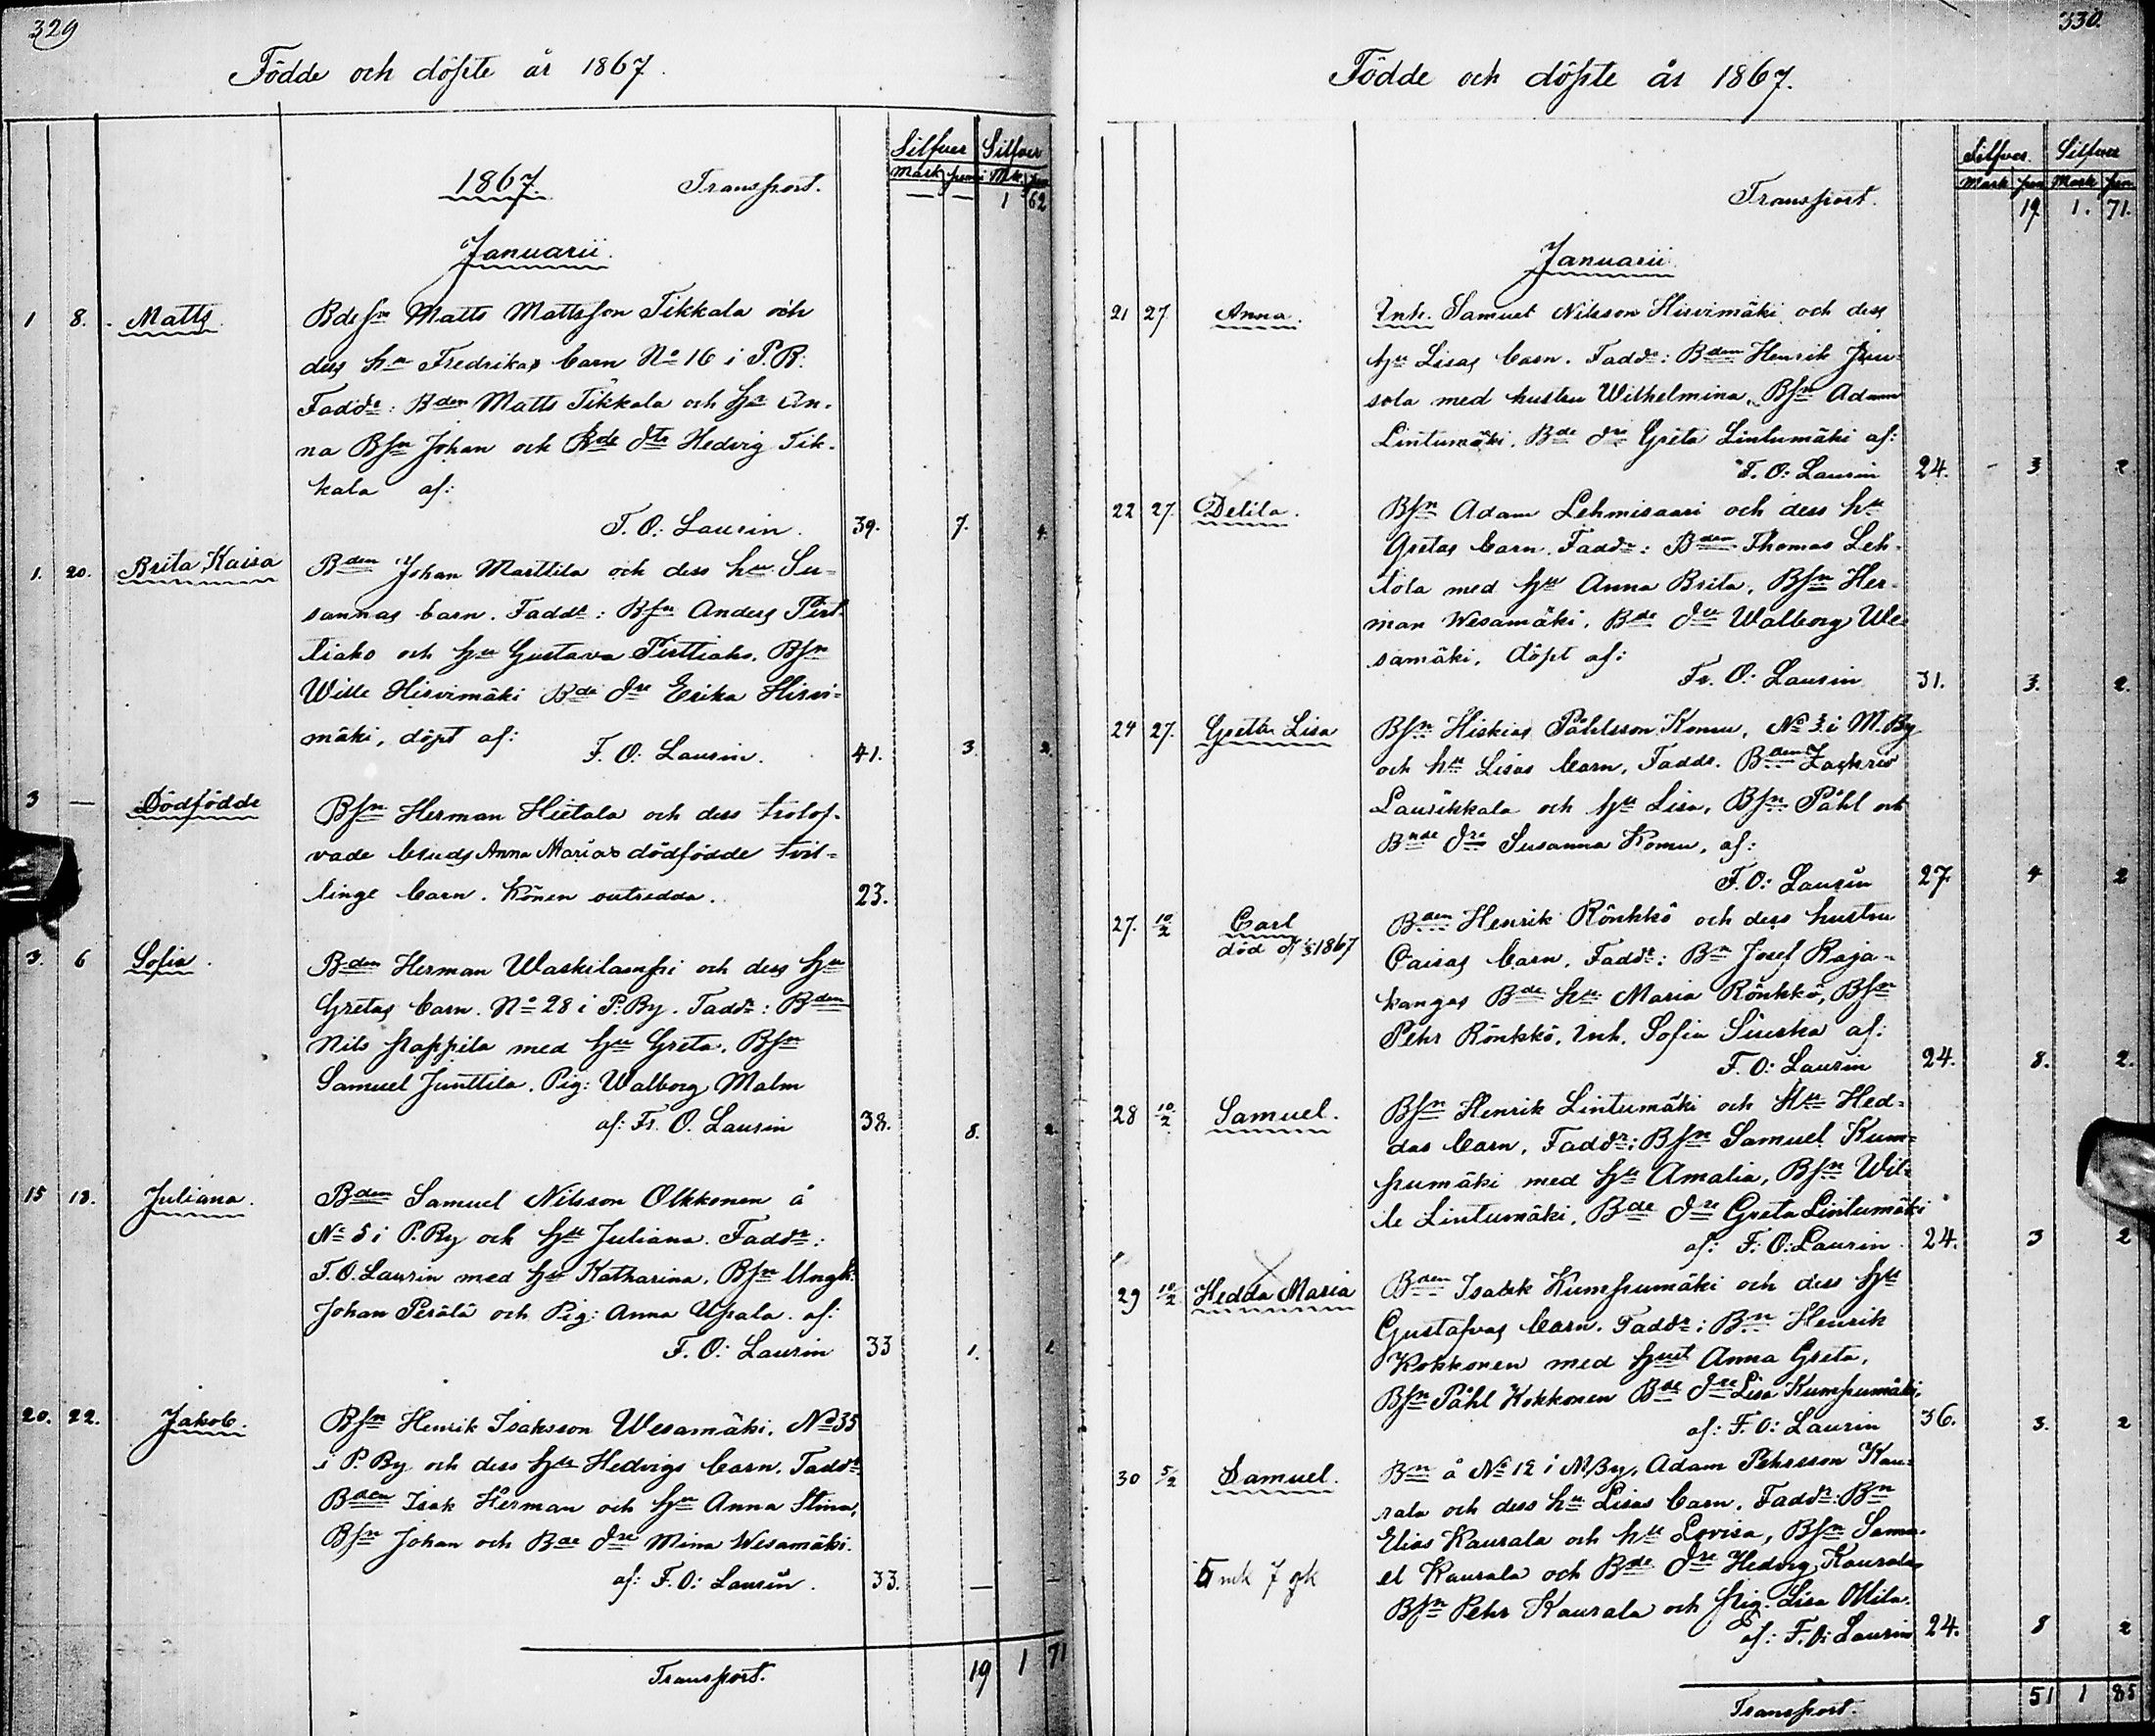 329
Födde och döpte år 1867.
Silfver Silfver
Mark penni Mk. pen
1867. Transport. — — 1 62
Januarii.
1 8. Matts Bdesn Matts Mattsson Tikkala och
dess hu Fredrikas barn No 16 i P.B.
Faddr: Bden Matts Tikkala och Hu An-
na Bsn Johan och Bde dtr Hedvig Tik-
kala af:
F. O: Laurin. 39. 7. 4.
1. 20. Brita Kaisa Bden Johan Marttila och dess hu Su-
sannas barn. Faddr: Bsn Anders Pirt-
tiaho och hu Gustava Pirttiaho. Bsn
Wille Hirvimäki Bde dre Erika Hirvi-
mäki, döpt af:
F. O: Laurin. 41. 3. 2.
3 — Dödfödde Bsn Herman Hietala och dess trolof-
vade bruds Anna Marias dödfödde tvil-
linge barn. Könen outredda. 23.
3. 6 Sofia. Bden Herman Waskilampi och dess hu
Gretas barn. No 28 i P. By. Faddr: Bden
Nils Pappila med hu Greta. Bsn
Samuel Junttila. Pig: Walborg Malm
af: Fr. O. Laurin 38. 8. 2.
15 18. Juliana. Bden Samuel Nilsson Olkkonen å
No 5 i P. By och hu Juliana. Faddr:
F. O. Laurin med hu Katharina. Bsn Ungk.
Johan Perälä och Pig: Anna Upala. af:
F. O: Laurin 33 1. 1.
20. 22. Jakob. Bsn Henrik Isaksson Wesamäki. No 35
i P. By och dess hu Hedvigs barn. Faddr
Bden Isak Herman och hu Anna Stina,
Bsn Johan och Bde dre Mina Wesamäki.
af: F. O: Laurin. 33. — —
Transport. 19 1 71
330.
Födde och döpte år 1867.
Silfver. Silfver
Mark pen Mark pen
Transport. 19 1. 71.
Januarii
21 27. Anna. Inh. Samuel Nilsson Hirvimäki och dess
hu Lisas barn. Faddr: Bden Henrik
sola med hustru Wilhelmina, Bsn Adam
Lintumäki. Bde dre Greta Lintumäki af:
F. O: Laurin 24. - 3 2.
22 27. Delila. Bsn Adam Lehmisaari och dess hu
Gretas barn. Faddr: Bden Thomas Leh-
tola med hu Anna Brita, Bsn Her-
man Wesamäki. Bde dre Walborg We-
samäki, döpt af:
Fr. O: Laurin 31. 3. 2.
24 27. Greta Lisa Bsn Hiskias Påhlsson Komu, No 3 i M. By
och hu Lisas barn, Faddr. Bden Zachris
Laurikkala och hu Lisa, Bsn Påhl och
Bnde dre Susanna Komu, af:
F. O: Laurin 27. 4 2
27. 10/2 Carl Bden Henrik Rönkkö och dess hustru
död 1867 Caisas barn, Faddr: Bn Josef Raja-
kangas Bde hu Maria Rönkkö, Bsn
Pehr Rönkkö. Inh. Sofia Siurka af:
F. O: Laurin 24. 8. 2.
28 10/2 Samuel. Bsn Henrik Lintumäki och Hu Hed-
das barn, Faddr: Bsn Samuel Kum-
pumäki med hu Amalia, Bsn Wil-
le Lintumäki, Bde dre Greta Lintumäki
af: F. O: Laurin. 24. 3 2
29 10/2 Hedda Maria Bden Isaak Kumpumäki och dess hu
Gustafvas barn. Faddr: Bn Henrik
Kokkonen med hust Anna Greta,
Bsn Påhl Kokkonen Bde dre Lisa Kumpumäki,
af: F. O: Laurin 36. 3. 2
30 5/2 Samuel. Bn å No 12 i M By, Adam Pehrsson Kau-
rala och dess hu Lisas barn. Faddr: Bn
Elias Kaurala och hu Lovisa, Bsn Samu-
el Kaurala och Bde dre Hedvig Kaurala
5 mk 7 pk Bsn Pehr Kaurala och Pig. Lisa Ollila.
af: F. O: Laurin 24. 8 2
Transport. 51 1 85